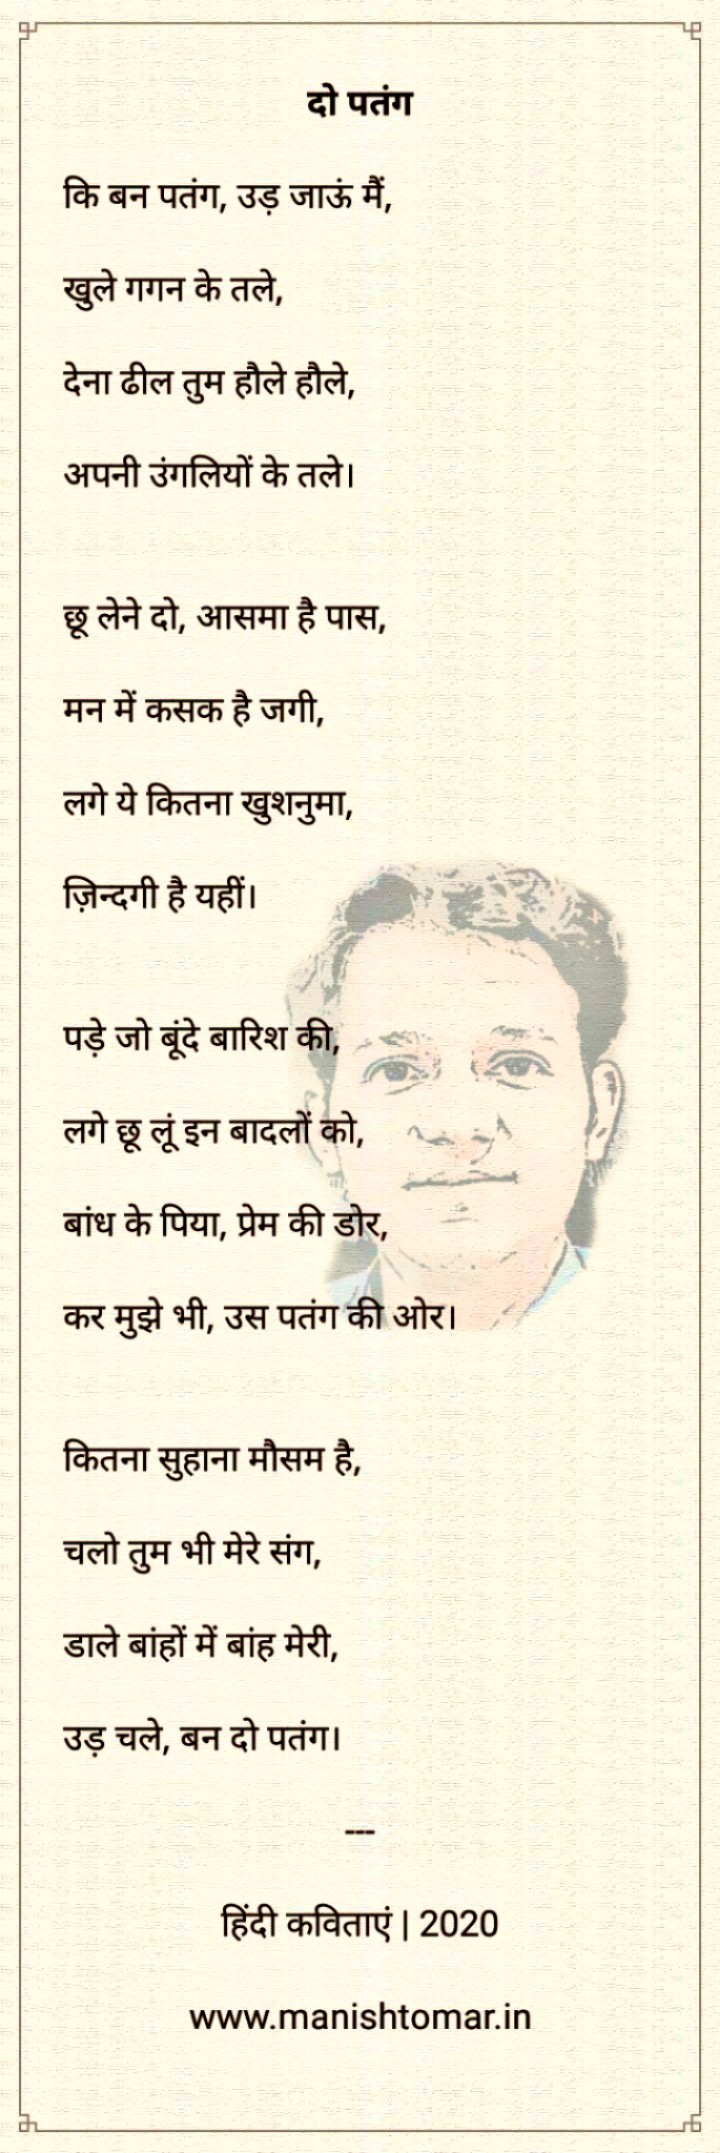 दो पतंग
कि बन पतंग, उड़ जाऊं मैं,
खुले गगन के तले,
देना ढील तुम हौले हौले,
अपनी उंगलियों के तले।
छू लेने दो, आसमा है पास,
मन में कसक है जगी,
लगे ये कितना खुशनुमा,
ज़िन्दगी है यहीं।
पड़े जो बूंदे बारिश की,
लगे छू लूं इन बादलों को,
बांध के पिया, प्रेम की डोर,
कर मुझे भी, उस पतंग की ओर।
कितना सुहाना मौसम है,
चलो तुम भी मेरे संग,
डाले बांहों में बांह मेरी,
उड़ चले, बन दो पतंग।
---
हिंदी कविताएं | 2020
www.manishtomar.in